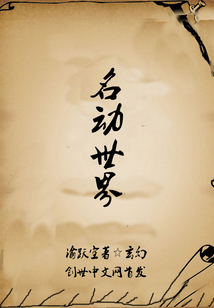 名动世界
渝跃空著☆玄幻
创世中文网首发